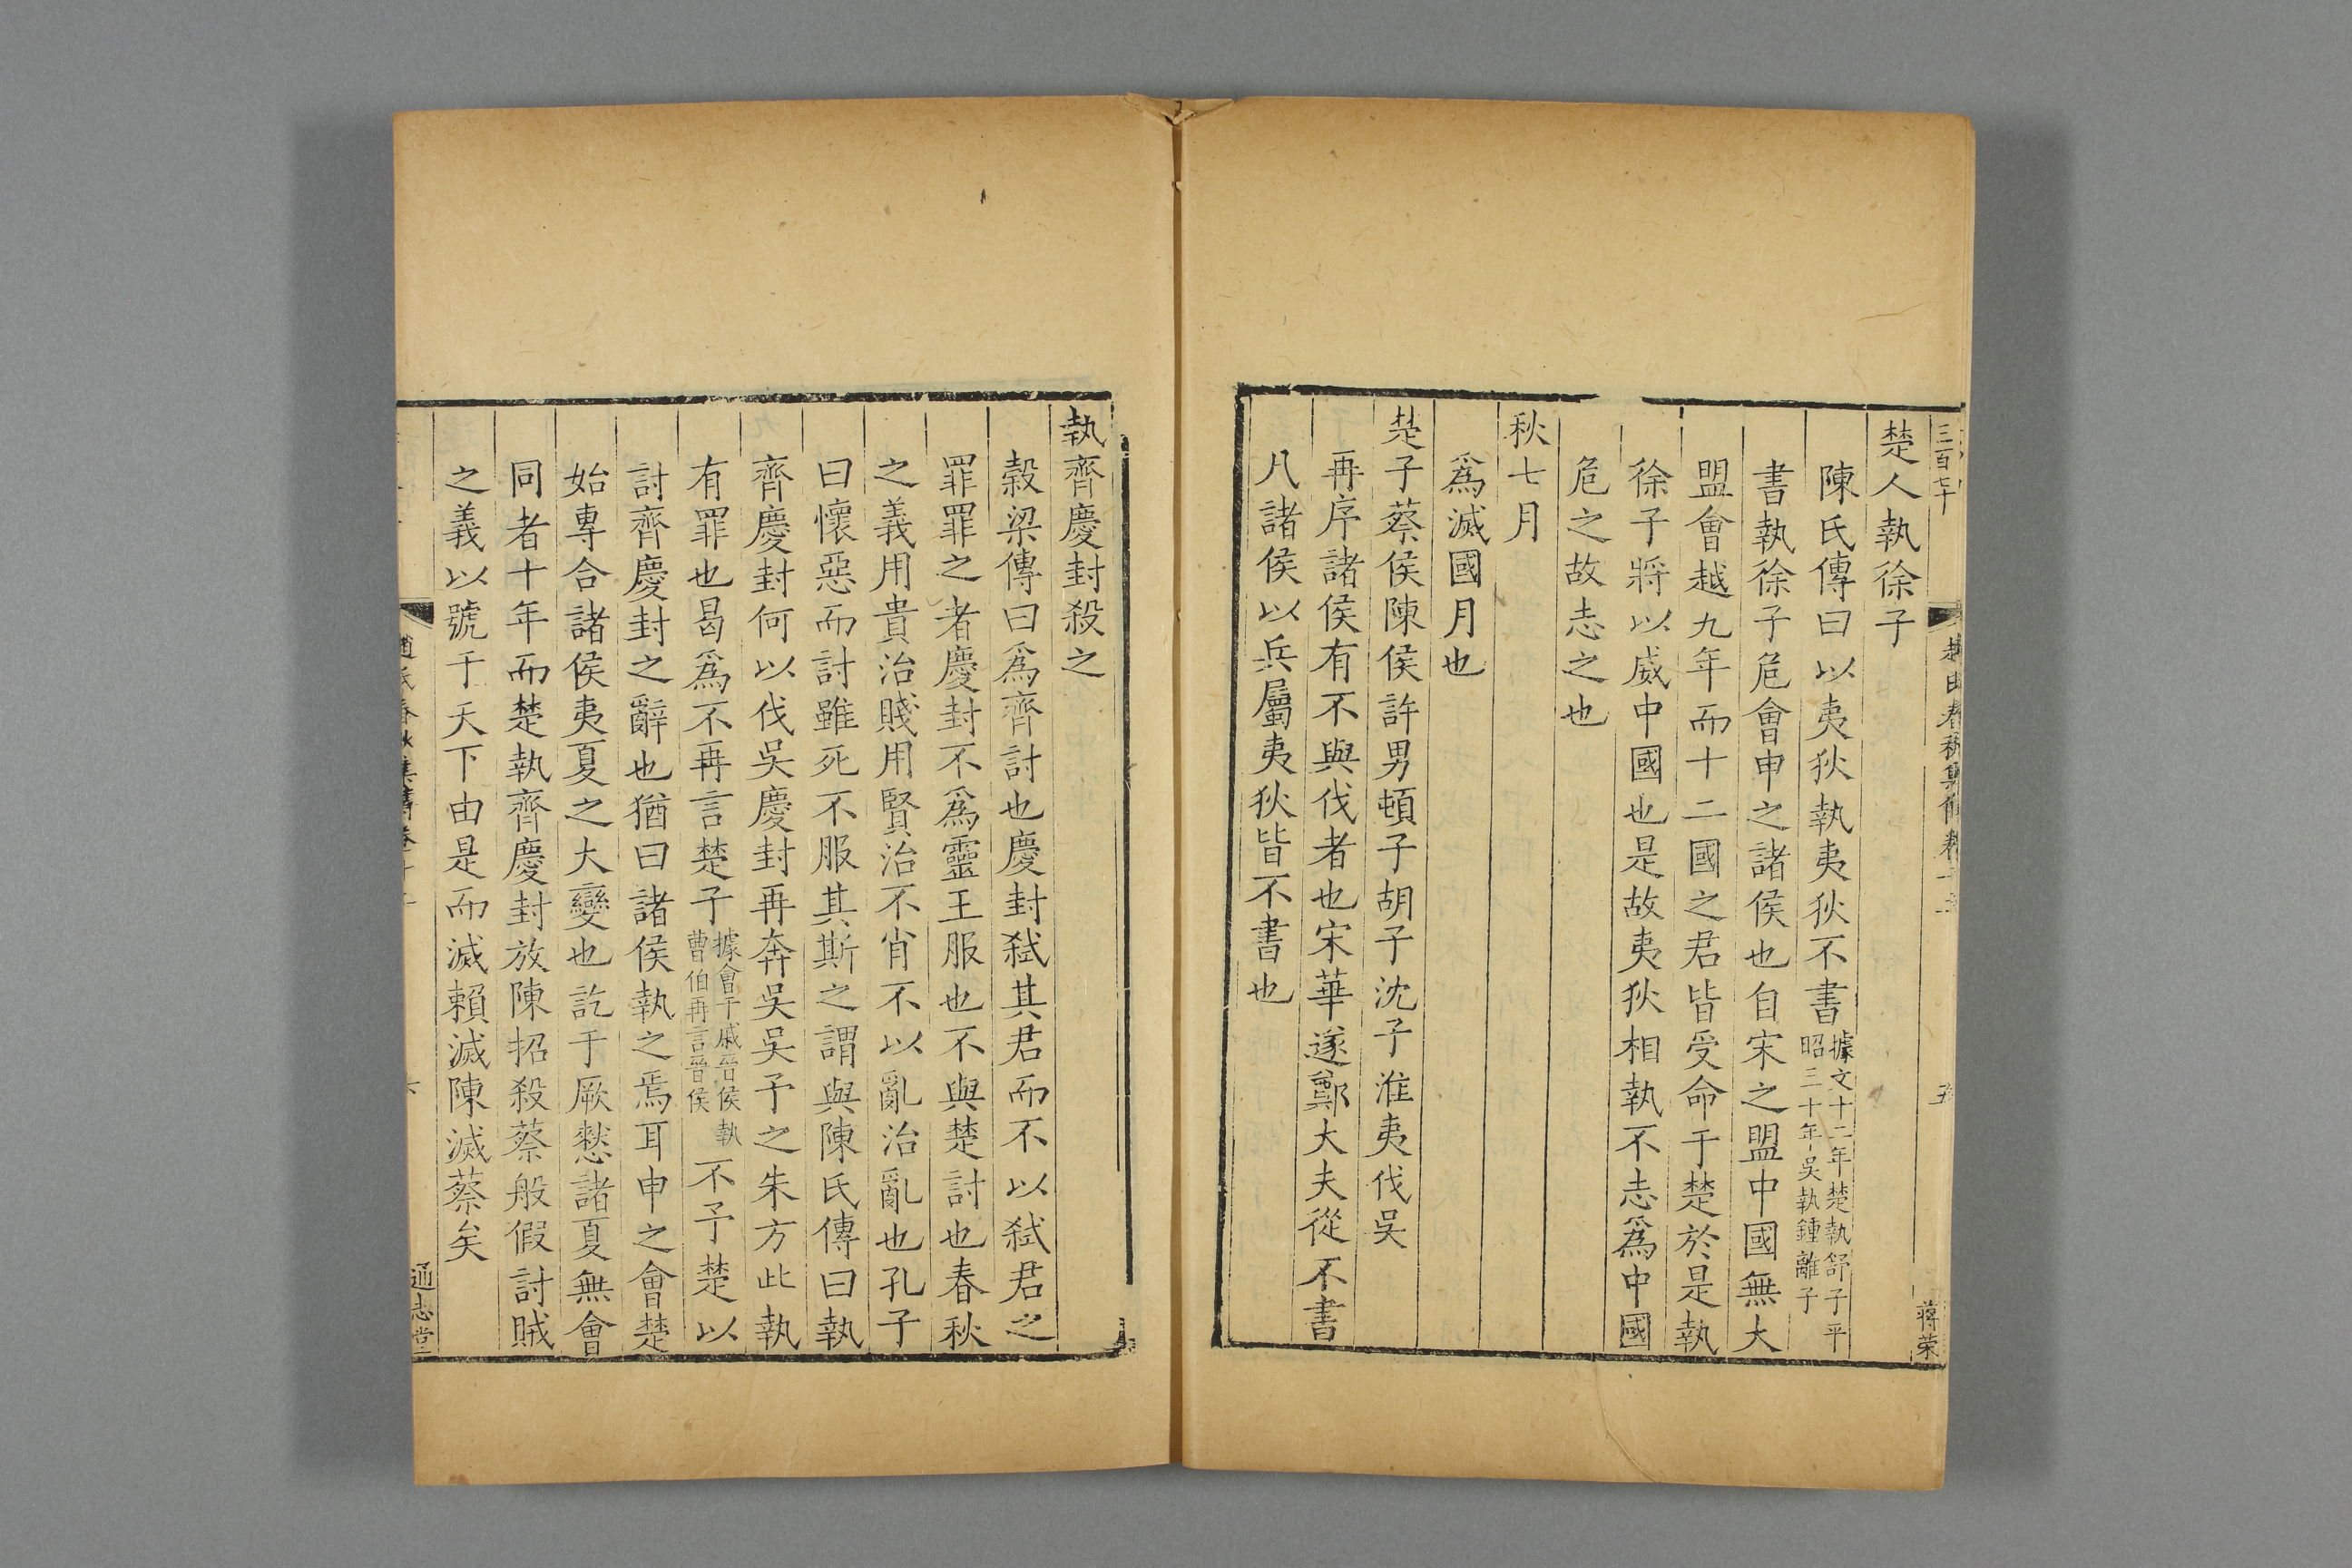 三百七十
蔣榮
楚人執徐子
陳氏傳曰以夷狄執夷狄不書據文十二年楚執舒子平
昭三十年吳執鍾離子
書執徐子危會申之諸侯也自宋之盟中國無大
盟會越九年而十二國之君皆受命于楚於是執
徐子將以威中國也是故夷狄相執不志爲中國
危之故志之也
秋七月
爲滅國月也
楚子蔡侯陳侯許男頓子胡子沈子淮夷伐吳
再序諸侯有不與伐者也宋華遂鄭大夫從不書
八諸侯以兵屬夷狄皆不書也
執齊慶封殺之
穀梁傳曰爲齊討也慶封弑其君而不以弑君之
罪罪之者慶封不爲靈王服也不與楚討也春秋
之義用貴治賤用賢治不肖不以亂治亂也孔子
曰懷惡而討雖死不服其斯之謂與陳氏傳曰執
齊慶封何以伐吳慶封再奔吳吳予之朱方此執
有罪也曷爲不再言楚子據會于戚晉侯執
曹伯再言晉侯不予楚以
討齊慶封之辭也猶曰諸侯執之焉耳申之會楚
始專合諸侯夷夏之大變也訖于厥憖諸夏無會
同者十年而楚執齊慶封放陳招殺蔡般假討賊
之義以號于天下由是而滅賴滅陳滅蔡矣
通志堂